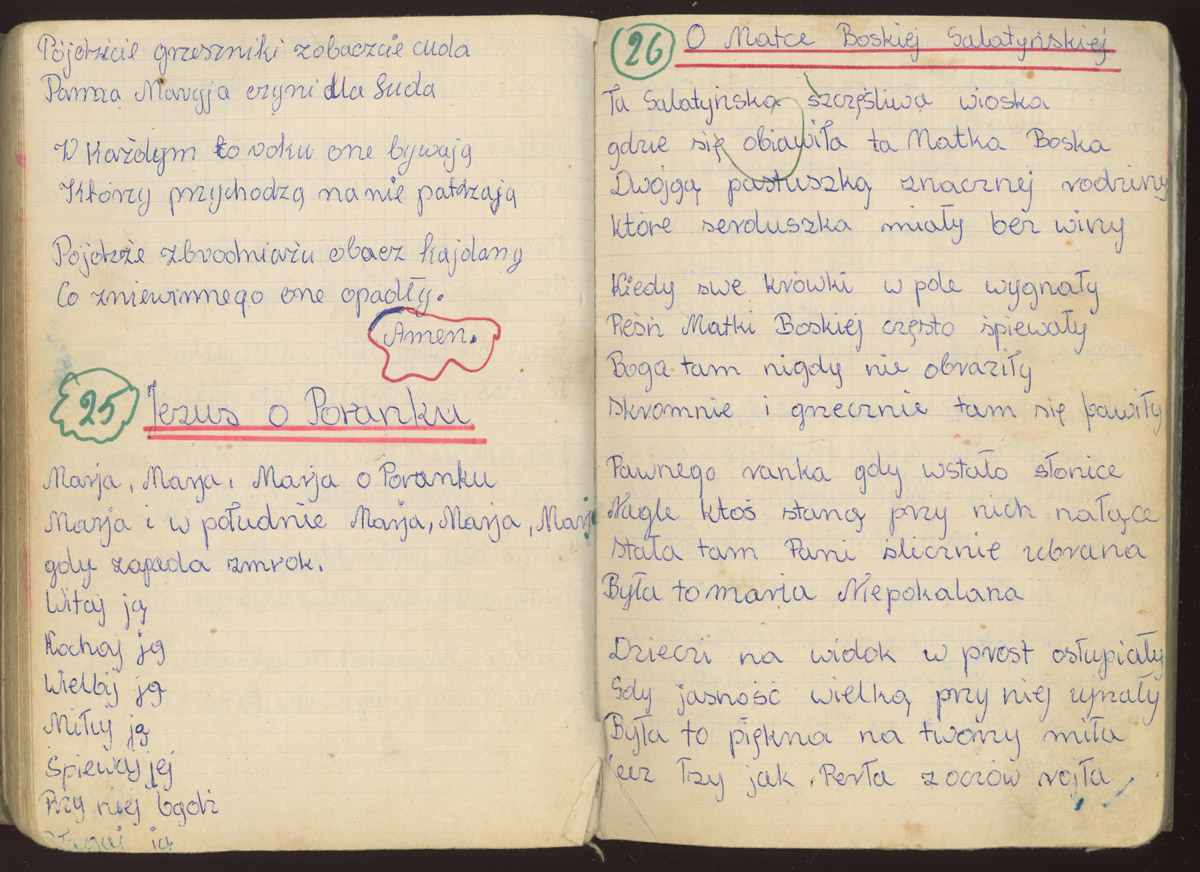 Pójdzicie grzeszniki zobaczcie cuda
Panna Maryja czyni dla luda
W Każdym to roku one bywają
Którzy przychodzą na nie patrzają
Pójdzże zbrodniażu obacz kajdany
Co zniewinnego one opadły.
Amen.
25 Jezus o Poranku
Marja, Marja, Marja o Poranku
Marja i w południe Marja, Marja, Marja
gdy zapada zmrok.
Witaj ją
Kochaj ją
Wielbij ją
Miłuj ją
Śpiewaj jej
Przy niej bądź
26 O Matce Boskiej Salatyńskiej
Ta Salatyńska szczęśliwa wioska
gdzie się obiawiła ta Matka Boska
Dwojgą pastuszką znacznej rodziny
które serduszka miały bez winy
Kiedy swe krówki w pole wygnały
Pieśń Matki Boskiej często śpiewały
Boga tam nigdy nie obraziły
skromnie i grzecznie tam się bawiły
Pawnego ranka gdy wstało słonice
Nagle ktoś staną przy nich nałące
stała tam Pani slicznie ubrana
Była to maria Niepokalana
Dzieczi na widok w prost osłupiały
Gdy jasność wielką przy niej ujrzały
Była to piękna na twórzy miła
lecz łzy jak Perła z oczów rojła